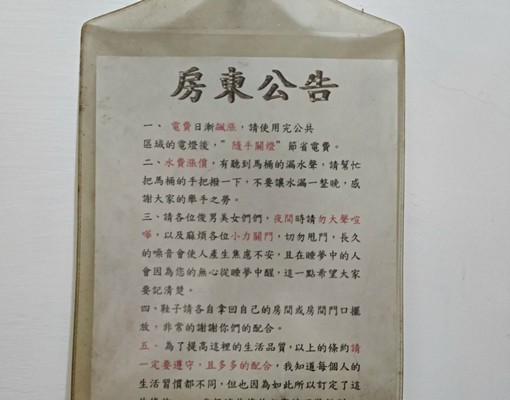 房東公告
一、電費日漸飆漲，請使用完公共
區域的電燈後，”隨手關燈”節省電費。
二、水費漲價，有聽到馬桶的漏水聲，請幫忙
把馬桶的手把撥一下，不要讓水漏一整晚，感
謝大家的舉手之勞。
三、請各位俊男美女們們，夜間時請勿大聲喧
嘩，以及麻煩各位小力關門，切勿甩門，長久
的噪音會使人產生焦慮不安，且在睡夢中的人
會因為您的無心從睡夢中醒，這一點希望大家
要記清楚。
四、鞋子請各自拿回自己的房間或房間門口擺
放，非常的謝謝你們的配合。
五、為了提高這裡的生活品質，以上的條約請
一定要遵守，且多多的配合，我知道每個人的
生活習慣都不同，但也因為如此所以訂定了這